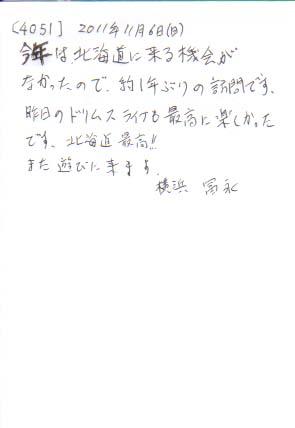 [4051] 2011年11月6日(日)
今年は北海道に来る機会が
なかったので、約1年ぶりの訪問です。
昨日のドリムスライブも最高に楽しかった
です。北海道最高!!
また遊びに来ます。
横浜 冨永